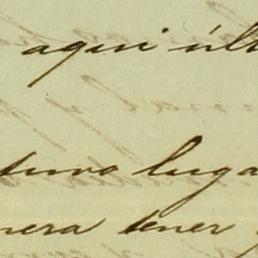 aquí últ
tuvo luga
nera tener